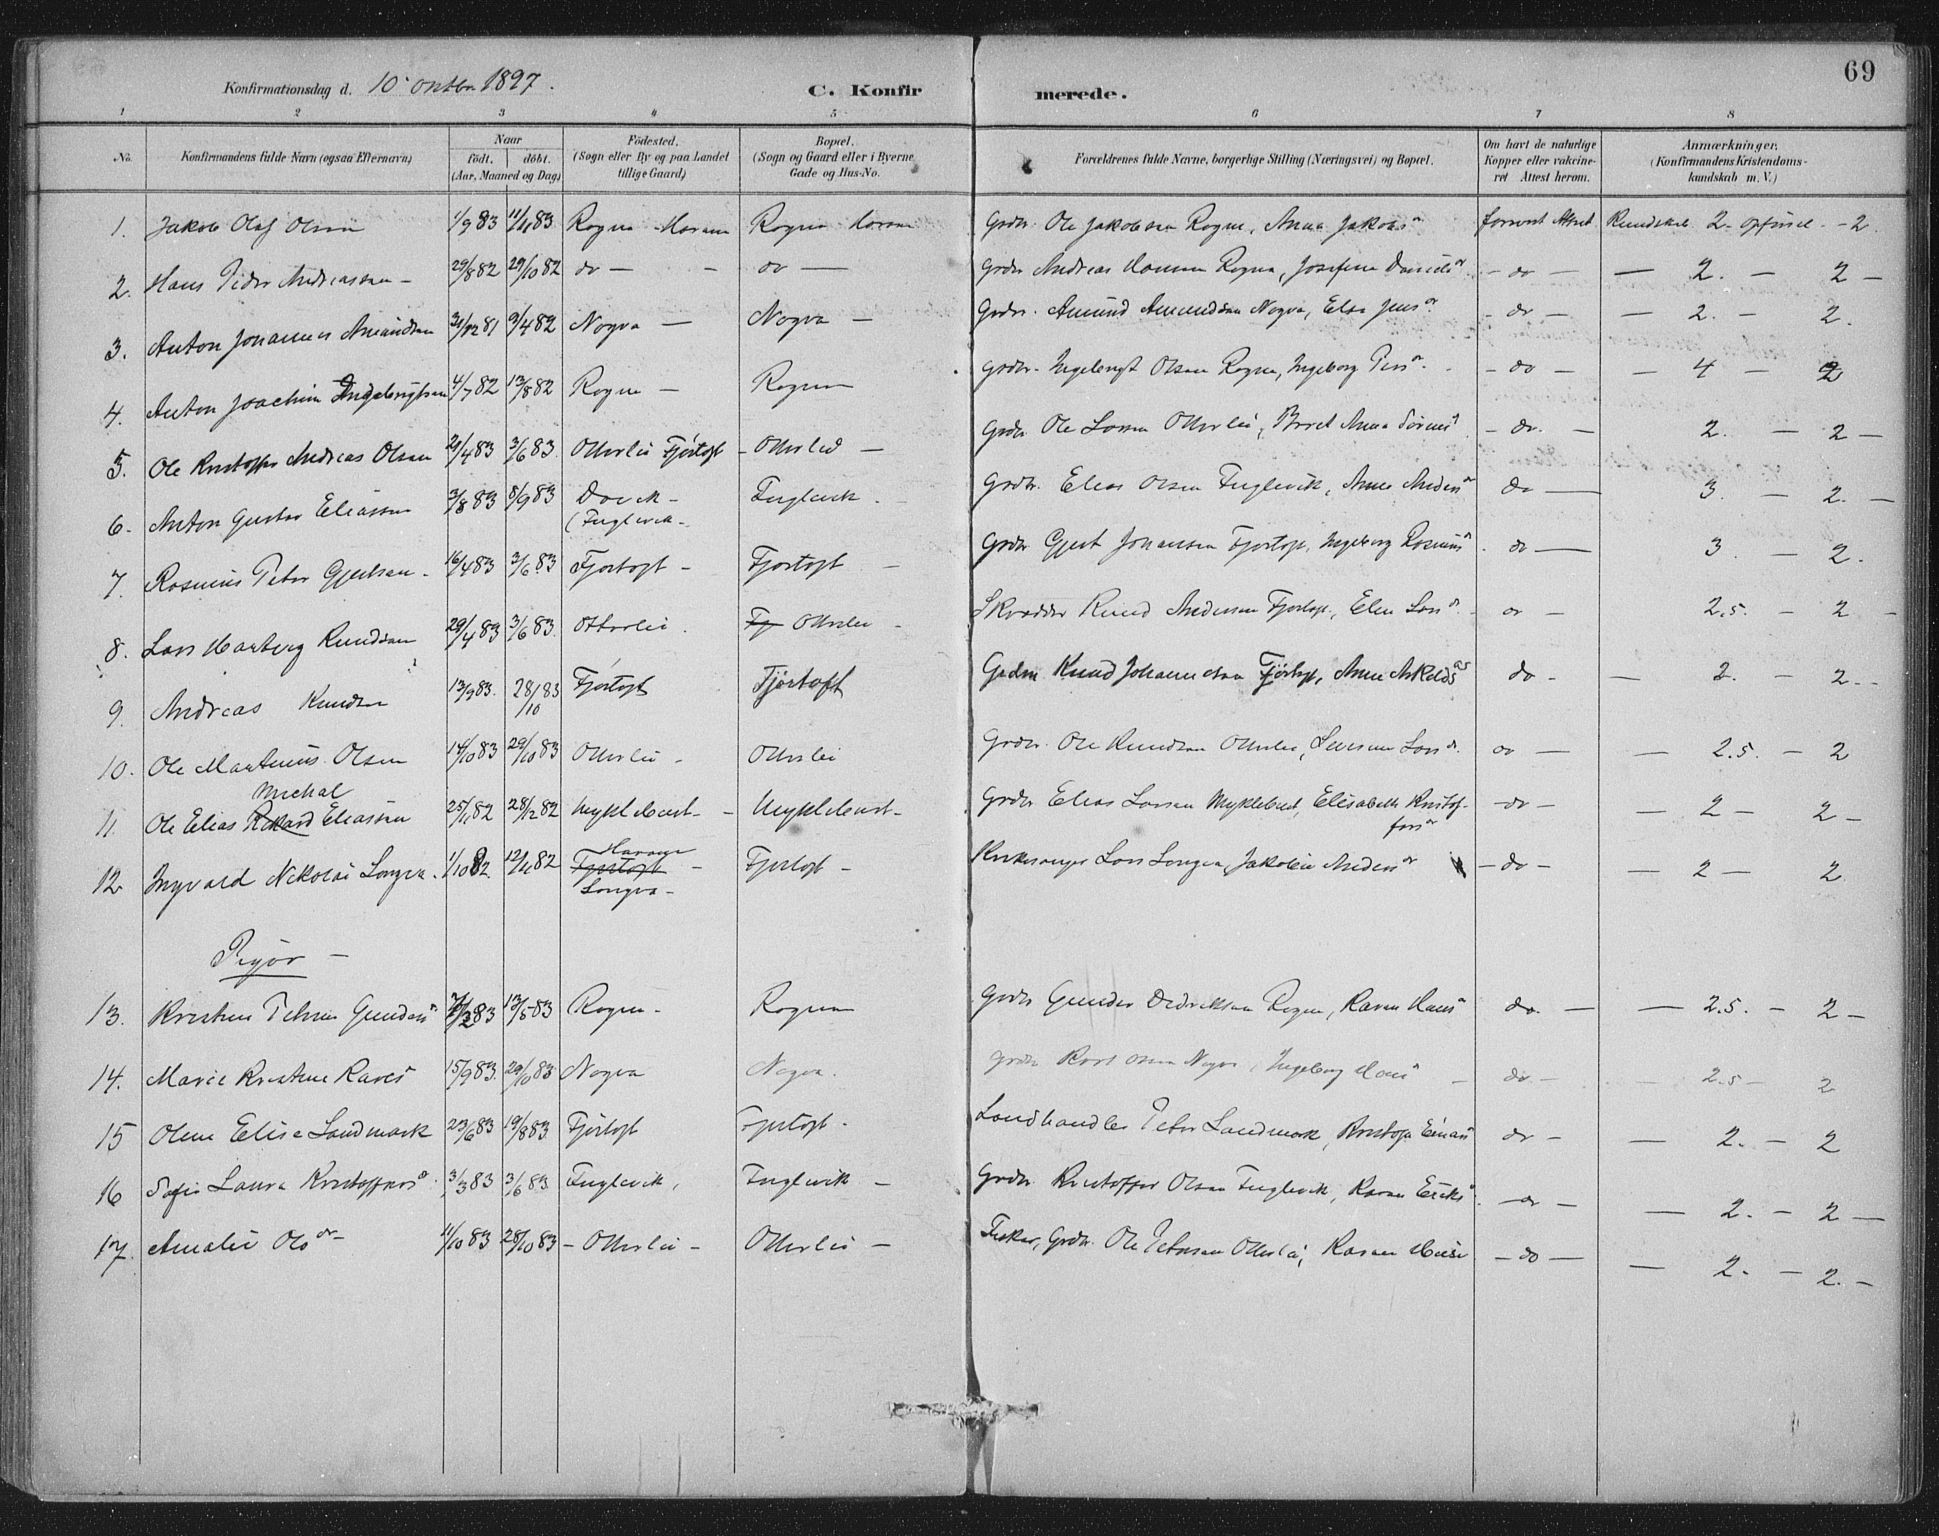 69
Konfirmationsdag d. 10' Oktbr 1897.
C. Konfirmerede.
1 2 3 4 5 6 7 8
No. Konfirmandens fulde Navn (ogsaa Efternavn) Naar födt. döbt. (Aar, Maaned og Dag) Födested. (Sogn eller By og paa Landet tillige Gaard) Bopæl. (Sogn og Gaard eller i Byerne Gade og Hus-No. Forældrenes fulde Navne, borgerlige Stilling (Næringsvei) og Bopæl. Om havt de naturlige Kopper eller vakcineret Attest herom. Anmærkninger, (Konfirmandens Kristendomskundskab m. V.)
1. Jakob Olaf Olsen 1/9 83 11/11 83 Rogne Haram Rogne Haram Grdbr. Ole Jakobsen Rogne, Anna Jakobsd Kundskab 2 - opförsel - 2.
2. Hans Peder Andreassen - 29/8 82 29/10 82 do - - do - Grdbr Andreas Hansen Rogne, Josefine Danielsdr - do - - 2. - 2 -
3. Anton Johannes Amundsen 31/12 81 9/4 82 Nogva - Nogva - Grdbr. Amund Amundsen Nogva, Else Jensdr - do - - 2. - 2.
4. Anton Joachim Ingebrigtsen 4/7 82 13/8 82 Rogne - Rogne Grdbr. Ingebrigt Olsen Rogne, Ingeborg Persdr - do - - 4 - 2
5. Ole Kristoffer Andreas Olsen 21/4 83 3/6 83 Otterlei Fjörtoft - Otterlei - Grdbr Ole Larsen Otterlei, Beret Anna - do. - 2. - 2 -
6. Anton Gustav Eliassen 3/8 83 8/9 83 (Fuglevik - Fuglevik. Grdbr. Elias Olsen Fuglevik, Anne Andersdr do - 3. - 2. -
7. Rasmus Peter Gjertsen. 16/4 83 3/6 83 Fjortoft - Fjortoft - Grdbr Gjert Johansen Fjortoft, Ingeborg Rasmusdr - do - 3. - 2.
8. Lars Hartvig Knudsen 29/4 83 3/6 83 Otterlei. Fj Otterlei - Skrædder Knud Andersen Fjortoft, Elen Larsdr. - do - 2.5. - 2 -
9. Andreas Knudsen 13/9 83. 28/10 83 Fjortoft Fjörtoft Grdm Knud Johannesen Fjörtoft, Anne do - - 2. - 2. -
10. Ole Martinus Olsen 14/10 83 29/10 83 Otterlei - Otterlei Grdbr. Ole Knudsen Otterlei, Larsdr. do - - 2.5. - 2
Michal
11. Ole Elias Rikard Eliassen 25/11 82 28/12 82 Myklebust - Myklebust - Grdbr Elias Larsen Myklebust, Elisabeth Kristoffersdr - do - - 2 - 2 -
12 Ingvald Nikolai Longva. 1/10 82. 12/11 82 Haram Fjortoft Longva - Fjortoft - Kirkesanger Lars Longva, Jakobine Andersdr - do - - 2 - 2
Piger -
13. Kristine Petrine Gundersd 83 13/5 83 Rogne - Rogne Grdbr Gunder Didriksen Rogne, Karen Hansd do. - - 2.5. - 2 -
14. Marie Kristine Karlsd 15/9 83. 29/10 83 Nogva Nogva. Grdbr Karl Olsen Nogva, Ingeborg Hansd - do. - - 2.5 - 2
15 Oline Elise Landmark 23/6 83 19/8 83 Fjörtoft Fjortoft - Landhandler Peter Landmark, do - - 2. - 2
16 Sofie Laura Kristoffersdr. 3/3 83 3/6 83 Fuglevik, Fuglevik - Grdbr. Kristoffer Olsen Fuglevik, Karen Eriksd - do - - 2. - 2 -
17. Amalie Olsdr - 11/10 83 28/10 83 - Otterlei - Otterlei - Fisker, Grdbr. Ole Petersen Otterlei, Karen - do - - 2. - 2. -